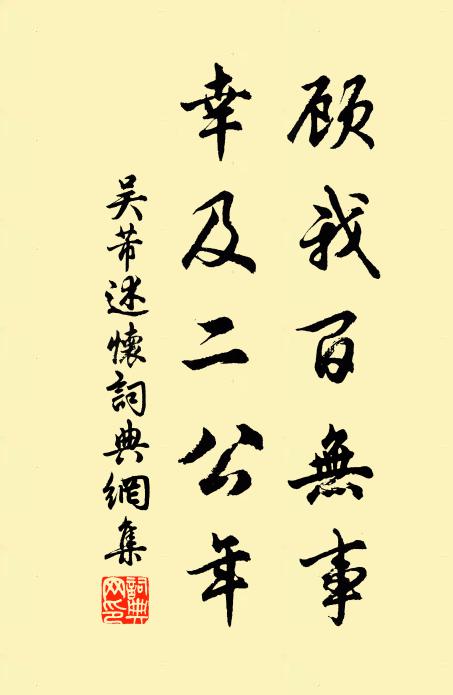 顾我百無事
幸及二公年
吴芾述懷詞典網集
詞典網印